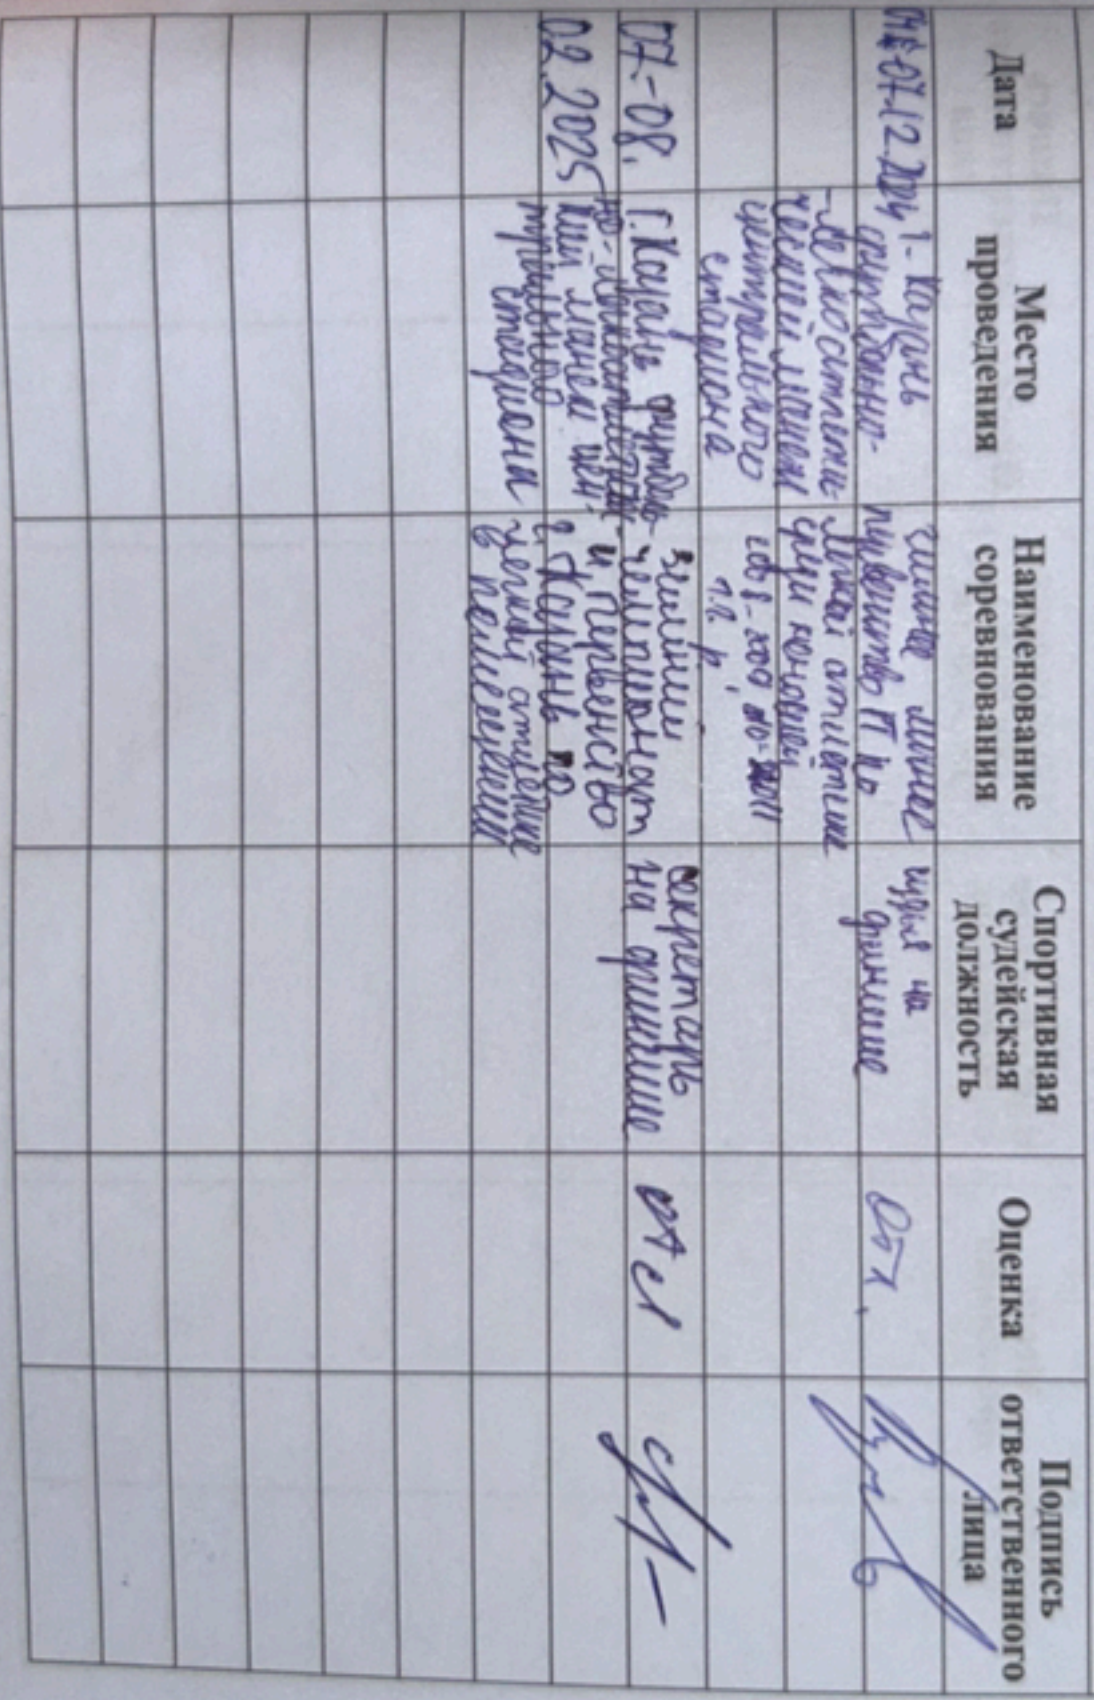 Дата
Место
проведения
Наименование
соревнования
Спортивная
судейская
должность
Оценка
Подпись
ответственного
лица
07.12.2024
г. Казань
футбольно-
-легкоатлети-
ческий манеж
центрального
стадиона
зимнее личное
первенство РТ по
легкой атлетике
среди юношей
г.г. р.
судья на
финише
отл.
07-08.
02.2025
г. Казань футболь-
но-легкоатлетичес-
кий манеж цен-
трального
стадиона
зимний
чемпионат
и первенство
г Казань по
легкой атлетике
в помещении
секретарь
на финише
отл